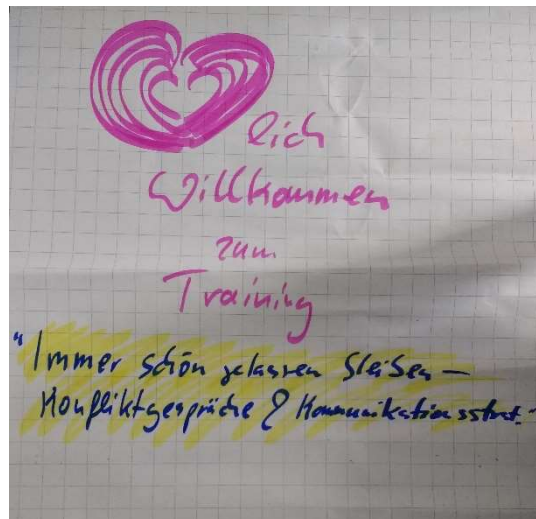 lich
Willkommen
zum
Training
"Immer schön gelassen bleiben –
Konfliktgespräche & Kommunikationsstrat."